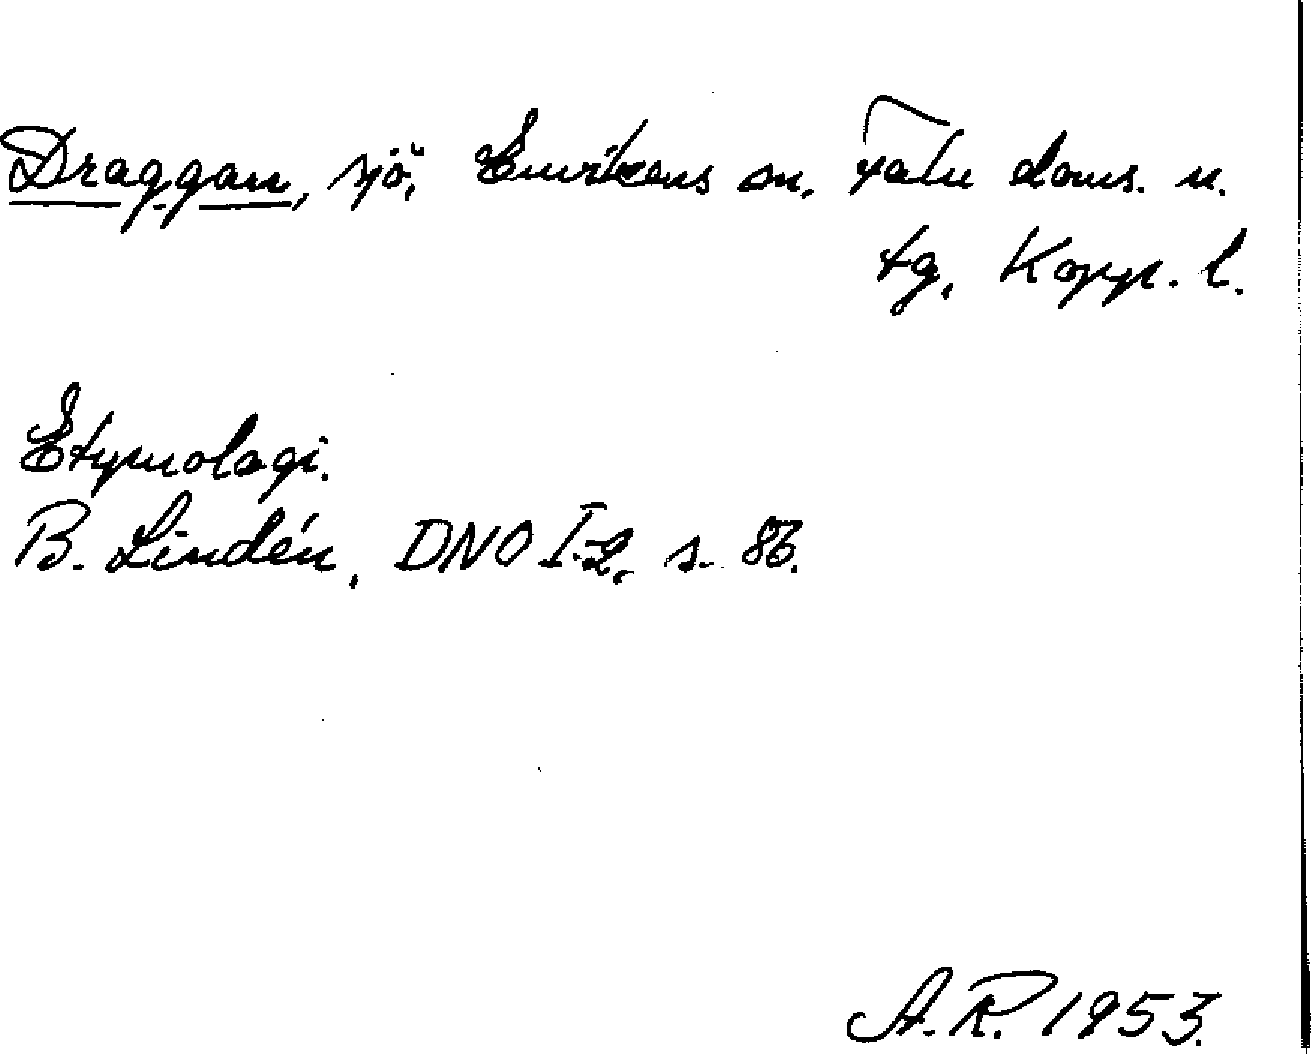 Draggan, sjö, Envikens sn, Falu doms. n.
tg, Kopp. l.
Etymologi.
B. Lindén, DNO I:2, s. 86.
A.R. 1953.